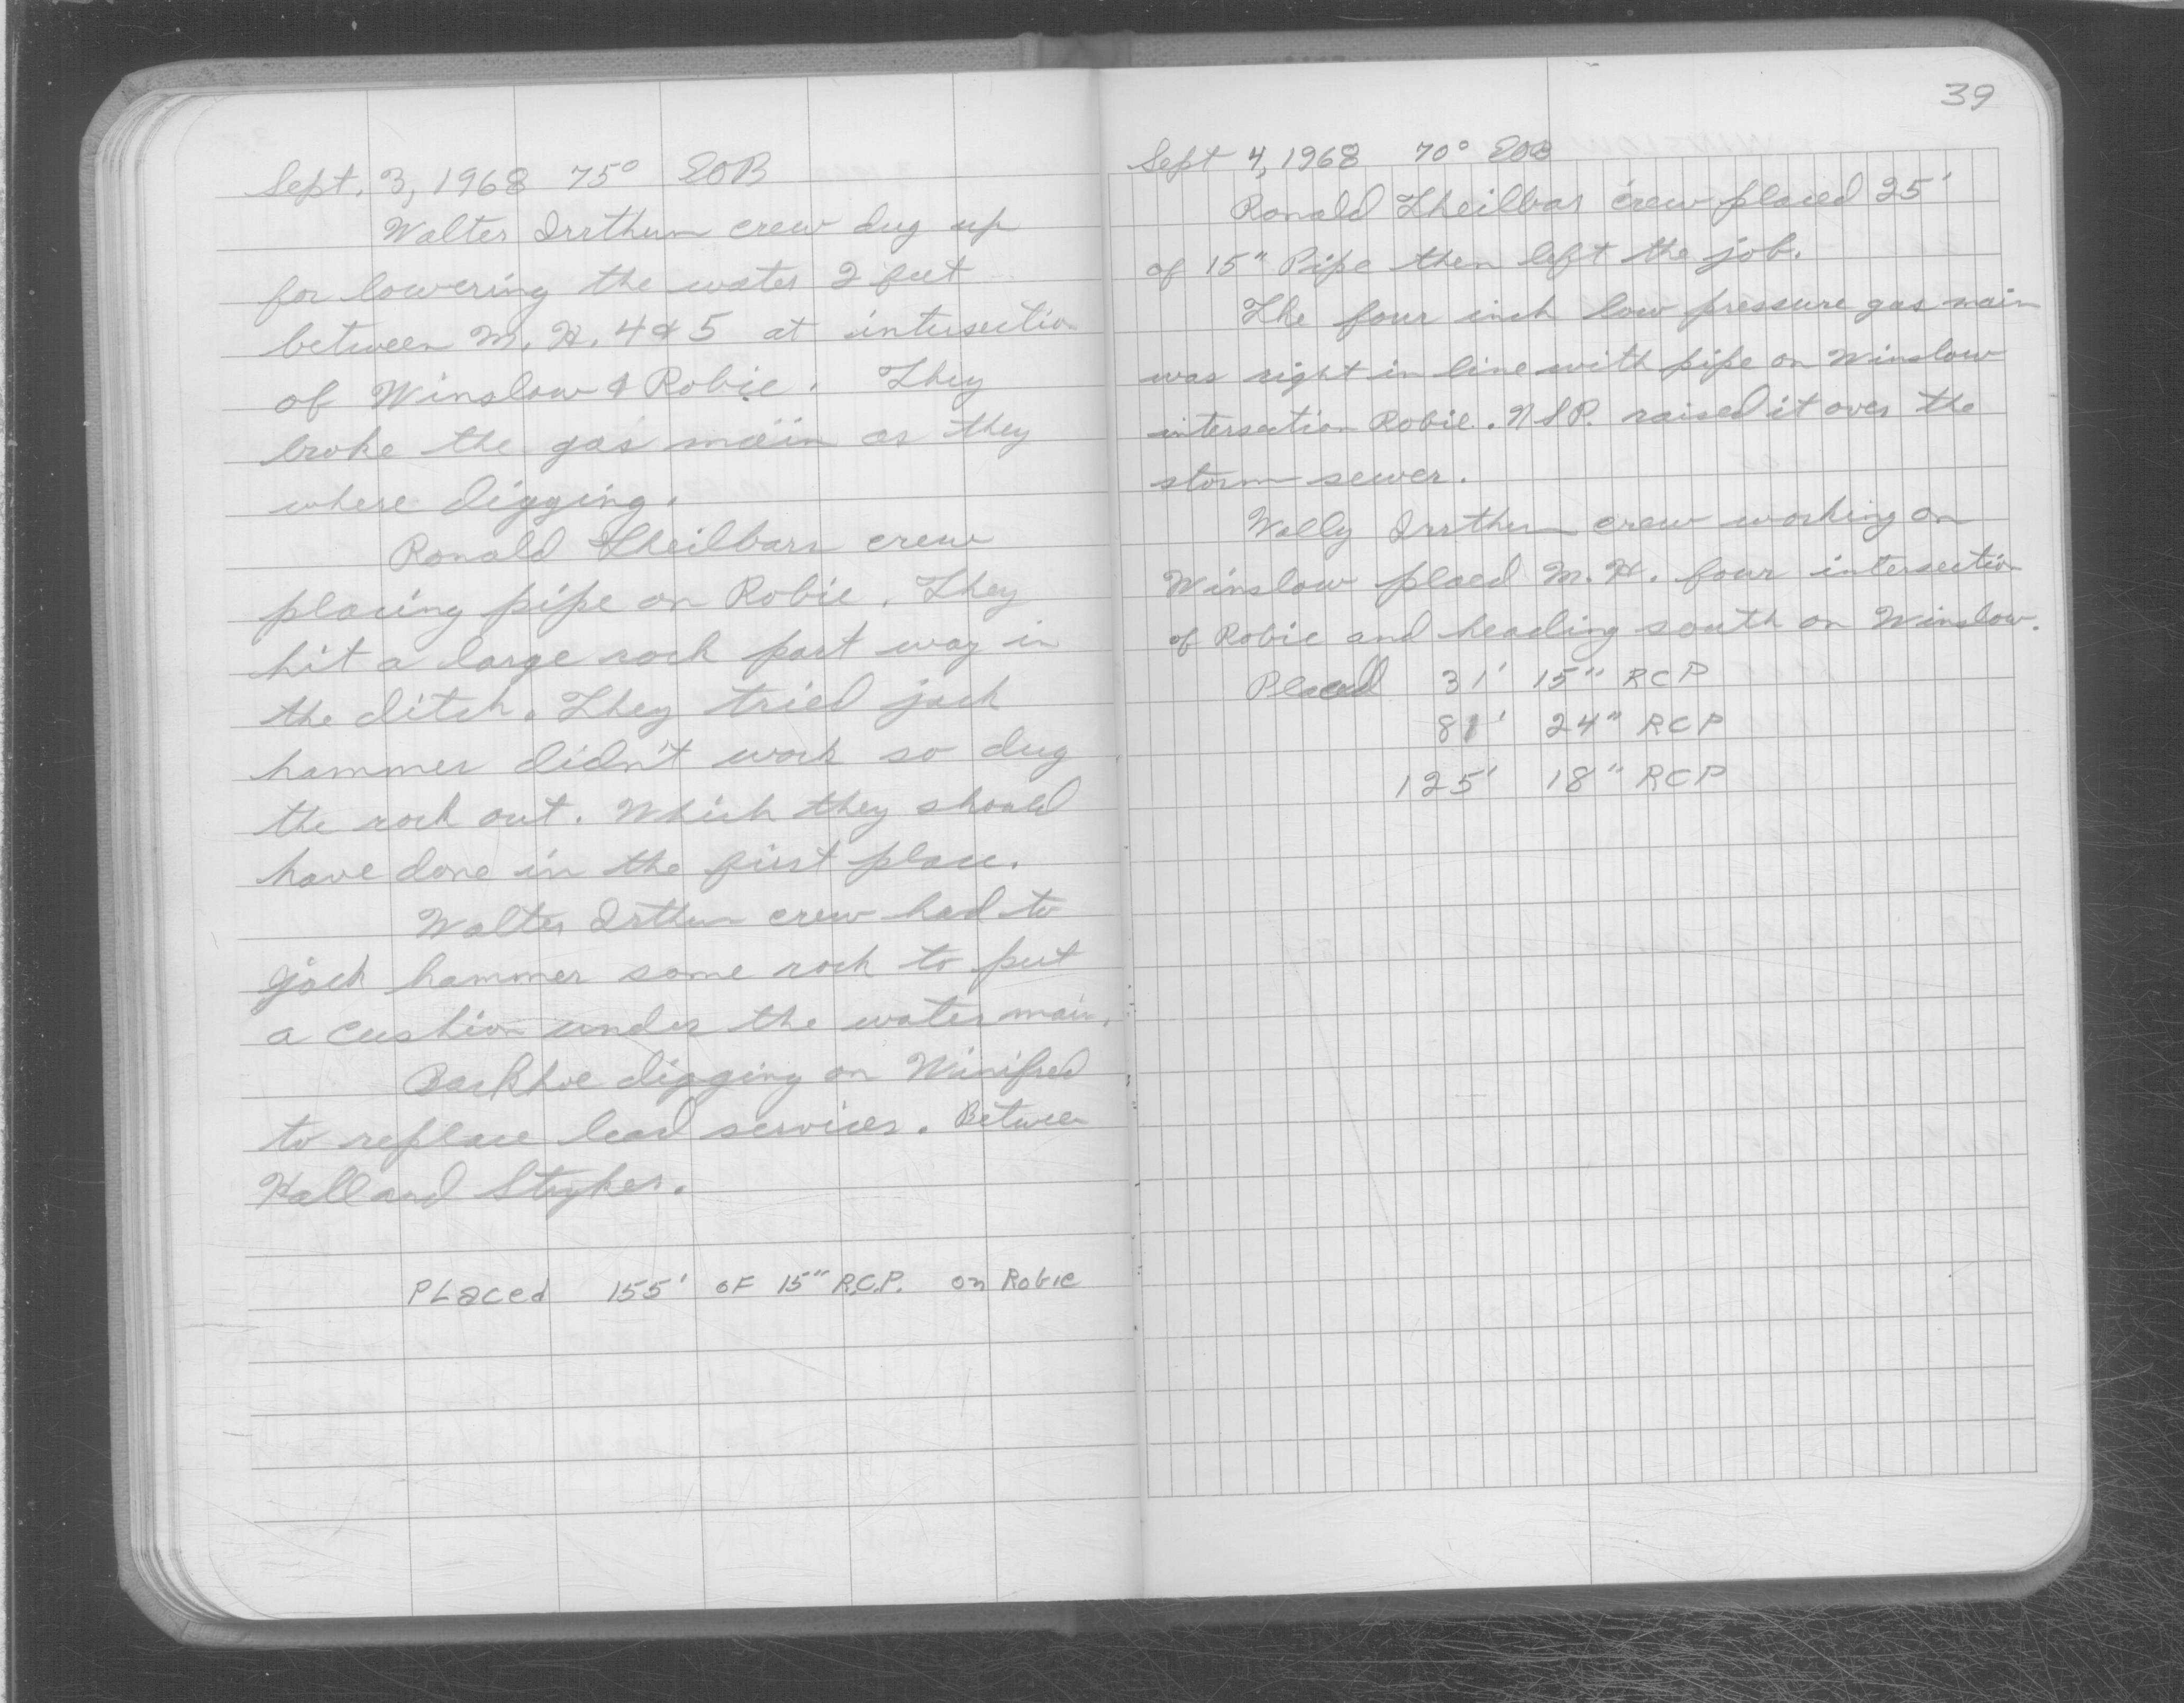 Sept. 3, 1968 75° EOB
Walter Irrthum crew dug up
for lowering the water 2 feet
between M. H. 4 & 5 at intersection
of Winslow & Robie. They
broke the gas main as they
where digging.
Ronald Theilbars crew
placing pipe on Robie. They
hit a large rock part way in
the ditch. They tried jack
hammer didn't work so dug
the rock out. Which they should
have done in the first place.
Walter Irthum crew had to
jack hammer some rock to put
a cushion under the water main.
Backhoe digging on Winifred
to replace lead services. Between
Hall and Stryker.
Placed 155' of 15" R.C.P. on Robie
39
Sept 4, 1968 70° EOB
Ronald Theilbar crew placed 25'
of 15" Pipe then left the job.
The four inch low pressure gas main
was right in line with pipe on Winslow
intersection Robie. NSP. raised it over the
storm sewer.
Wally Irrthum crew working on
Winslow placed M. H. four intersection
of Robie and heading south on Winslow.
Placed 31' 15" RCP
81' 24" RCP
125' 18" RCP